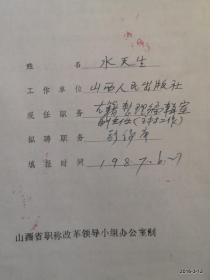 姓名 水天生
工作单位 山西人民出版社
现任职务 古籍整理编辑室
副主任(主持工作)
拟聘职务 副编审
填报时间 1987.6.27
山西省职称改革领导小组办公室制
2016-3-12